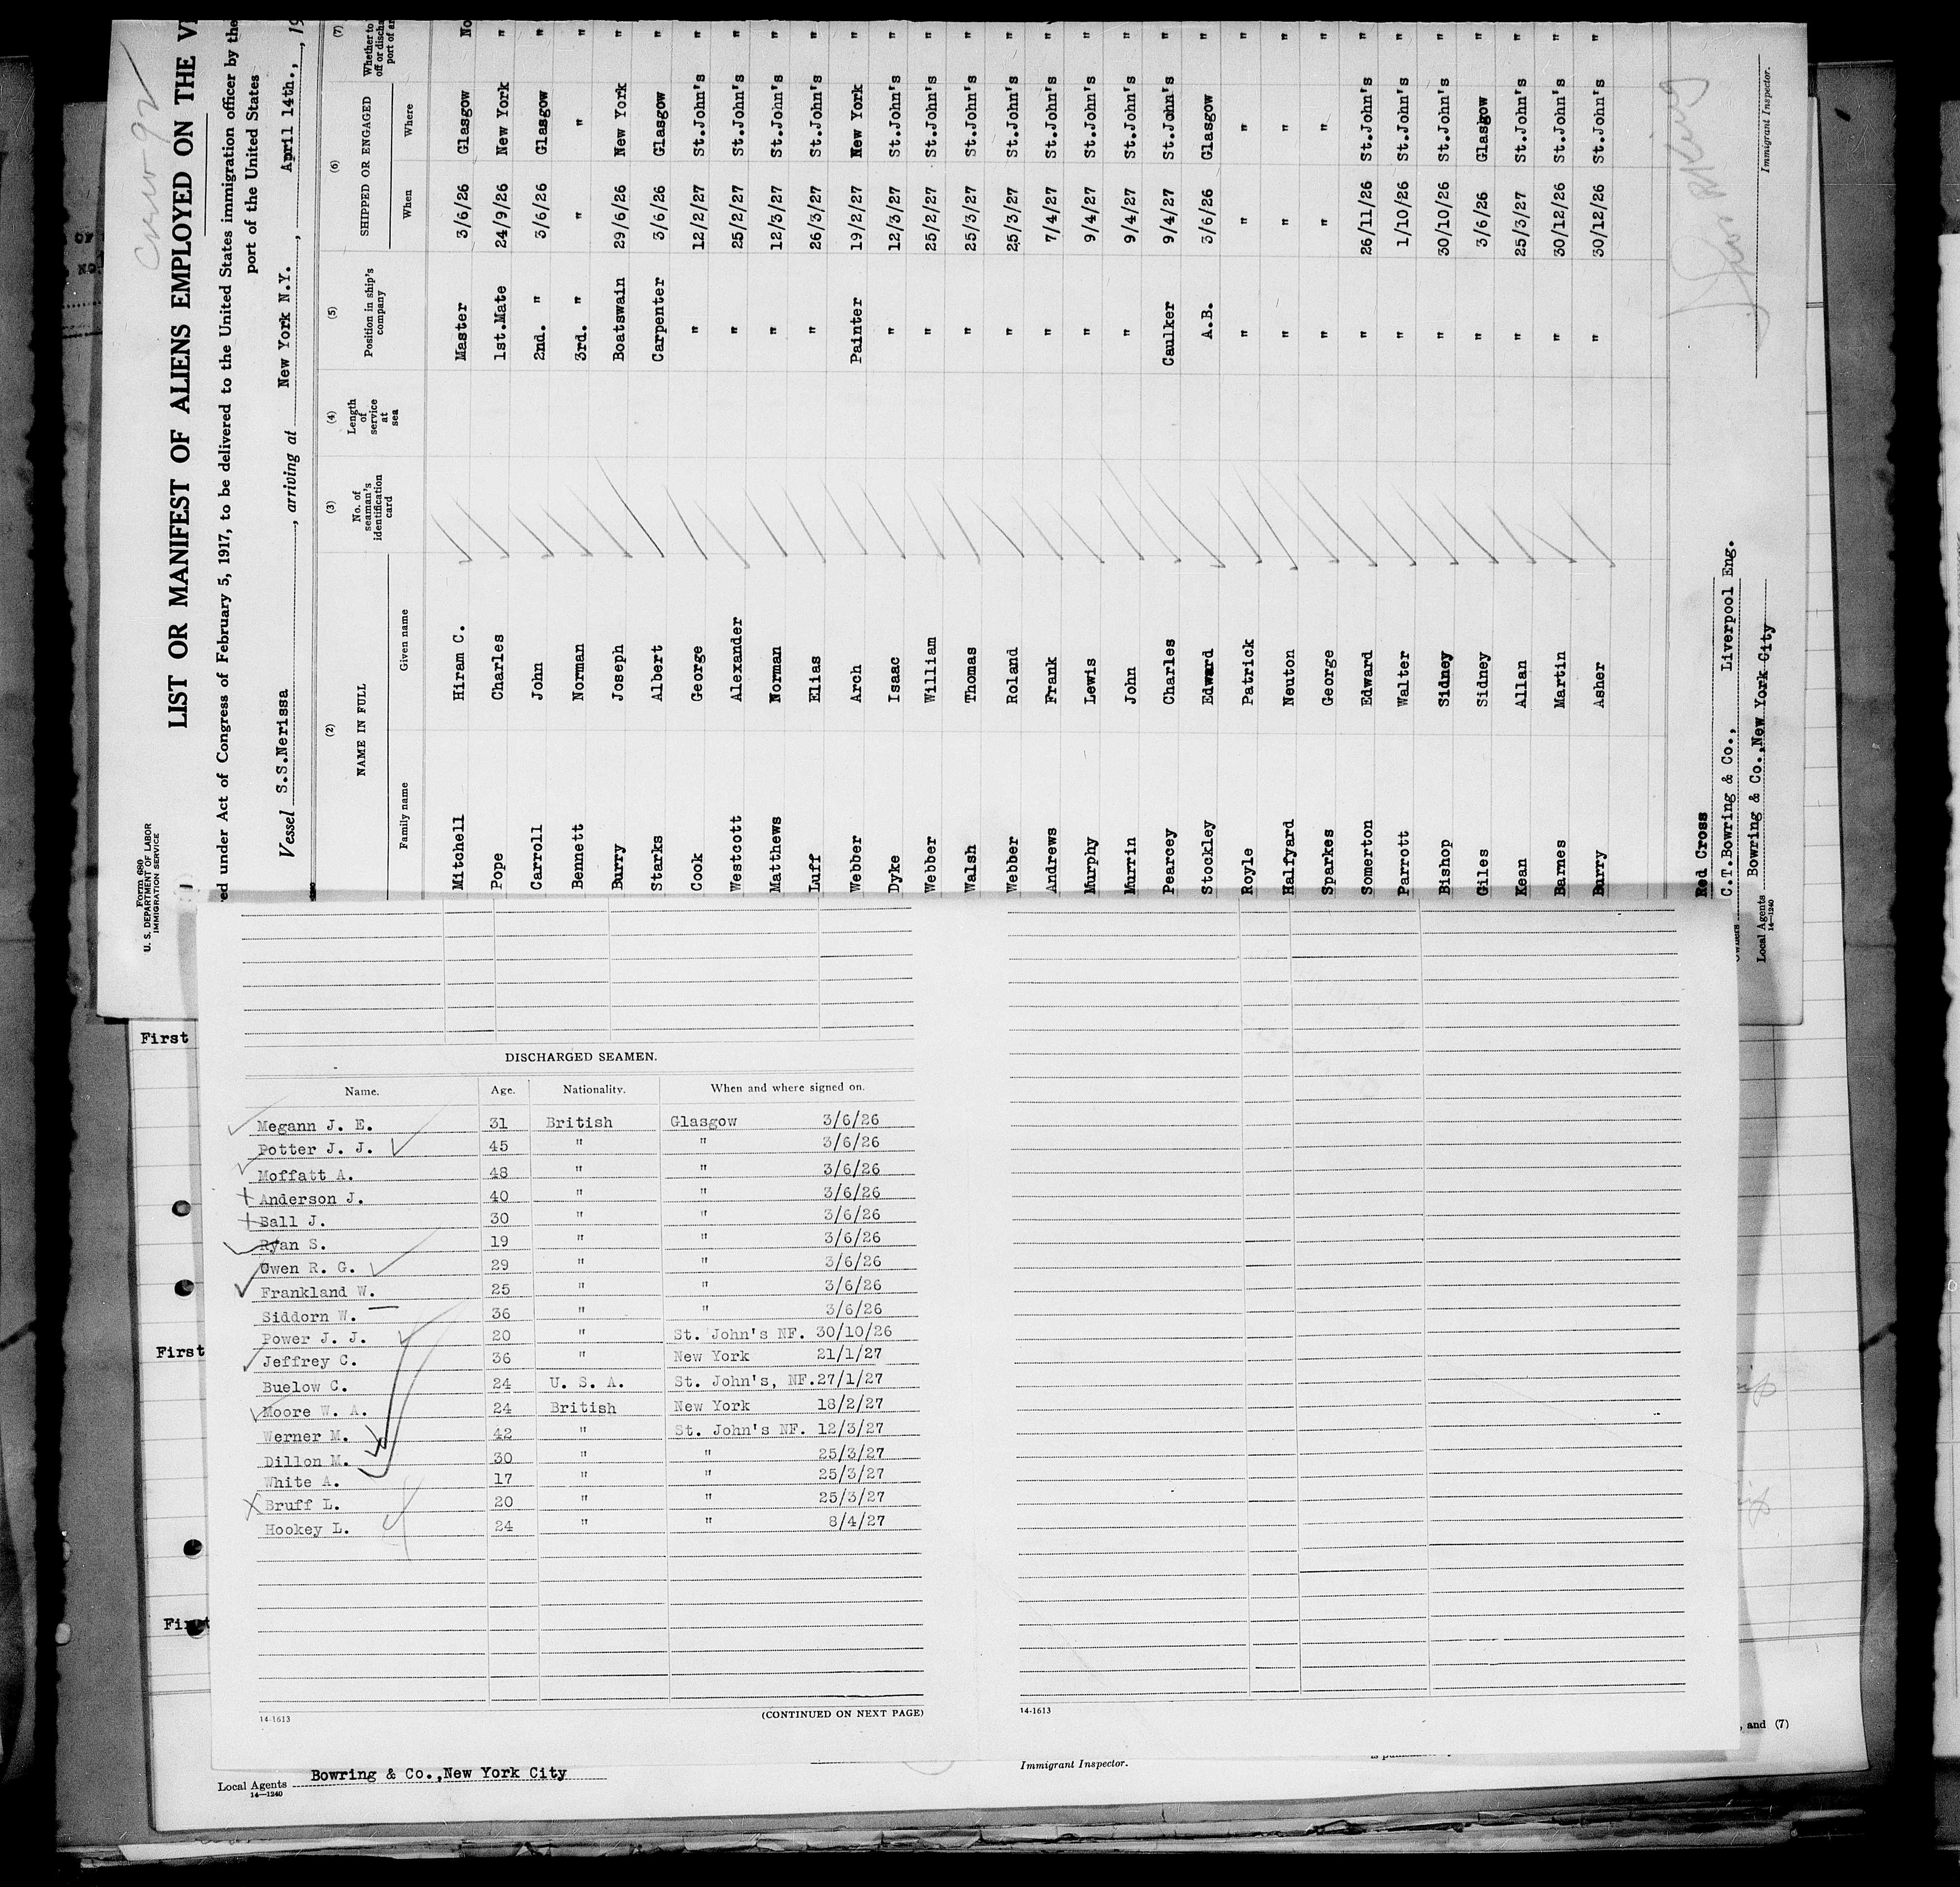 Form 680
U. S. DEPARTMENT OF LABOR
IMMIGRATION SERVICE
Crew 92
LIST OR MANIFEST OF ALIENS EMPLOYED ON THE
ed under Act of Congress of February 5, 1917, to be delivered to the United States immigration officer by the
port of the United States
Vessel S.S.Nerissa, arriving at New York N.Y., April 14th., 19
(2) (3) (4) (5) (6) (7)
NAME IN FULL No. of seaman's identification card Length of service at sea Position in ship's company SHIPPED OR ENGAGED Whether to
Family name Given name When Where
Mitchell Hiram C. Master 3/6/26 Glasgow No
Pope Charles 1st.Mate 24/9/26 New York "
Carroll John 2nd. " 3/6/26 Glasgow "
Bennett Norman 3rd. " " " "
Burry Joseph Boatswain 29/6/26 New York "
Starks Albert Carpenter 3/6/26 Glasgow "
Cook George " 12/2/27 St.John's "
Westcott Alexander " 25/2/27 St.John's "
Matthews Norman " 12/3/27 St.John's "
Luff Elias " 26/3/27 St.John's "
Webber Arch Painter 19/2/27 New York "
Dyke Isaac " 12/3/27 St.John's "
Webber William " 25/2/27 St.John's "
Walsh Thomas " 25/3/27 St.John's "
Webber Roland " 25/3/27 St.John's "
Andrews Frank " 7/4/27 St.John's "
Murphy Lewis " 9/4/27 St.John's "
Murrin John " 9/4/27 St.John's "
Pearcey Charles Caulker 9/4/27 St.John's "
Stockley Edward A.B. 3/6/26 Glasgow "
Royle Patrick " " " "
Halfyard Neuton " " " "
Sparkes George " " " "
Somerton Edward " 26/11/26 St.John's "
Parrott Walter " 1/10/26 St.John's "
Bishop Sidney " 30/10/26 St.John's "
Giles Sidney " 3/6/26 Glasgow "
Kean Allan " 25/3/27 St.John's "
Barnes Martin " 30/12/26 St.John's "
Burry Asher " 30/12/26 St.John's "
Red Cross
Owners C.T.Bowring & Co., Liverpool Eng.
Local Agents Bowring & Co.,New York City
14—1240
Immigrant Inspector.
First
First
First
DISCHARGED SEAMEN.
Name. Age. Nationality. When and where signed on.
Megann J. E. 31 British Glasgow 3/6/26
Potter J. J. 45 " " 3/6/26
Moffatt A. 48 " " 3/6/26
Anderson J. 40 " " 3/6/26
Ball J. 30 " " 3/6/26
Ryan S. 19 " " 3/6/26
Owen R. G. 29 " " 3/6/26
Frankland W. 25 " " 3/6/26
Siddorn W. 36 " " 3/6/26
Power J. J. 20 " St. John's NF. 30/10/26
Jeffrey C. 36 " New York 21/1/27
Buelow C. 24 U. S. A. St. John's, NF. 27/1/27
Moore W. A. 24 British New York 18/2/27
Werner M. 42 " St. John's NF. 12/3/27
Dillon M. 30 " " 25/3/27
White A. 17 " " 25/3/27
Bruff L. 20 " " 25/3/27
Hookey L. 24 " " 8/4/27
14-1613 (CONTINUED ON NEXT PAGE) 14-1613
, and (7)
Local Agents Bowring & Co.,New York City
14—1240
Immigrant Inspector.